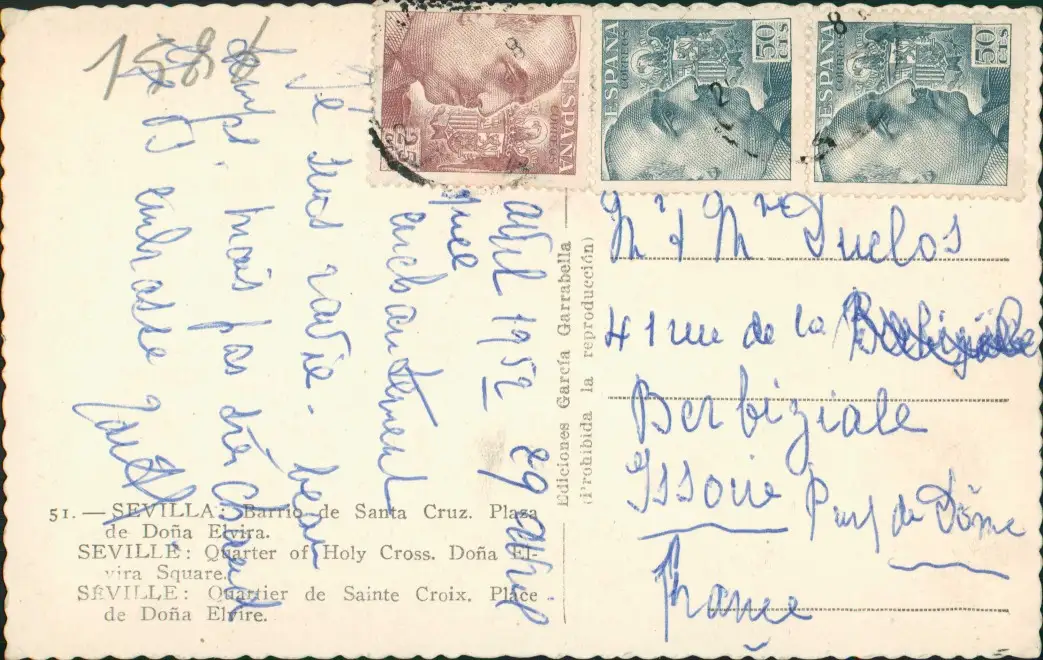 1584
ESPAÑA
CORREOS
25
CTS
ESPAÑA
CORREOS
50
CTS
ESPAÑA
CORREOS
50
CTS
avril 1952 29 avril
que
enchantement
Je suis ravie. beau
temps, mais pas très chaud
Je embrasse
Ediciones García Garrabella
(Prohibida la reproducción)
Mr & Mme Duclos
41 rue de la
Berbiziale
Issoire Puy de Dôme
France
51. — SEVILLA: Barrio de Santa Cruz. Plaza
de Doña Elvira.
SEVILLE: Quarter of Holy Cross. Doña El-
vira Square.
SÉVILLE: Quartier de Sainte Croix. Place
de Doña Elvire.